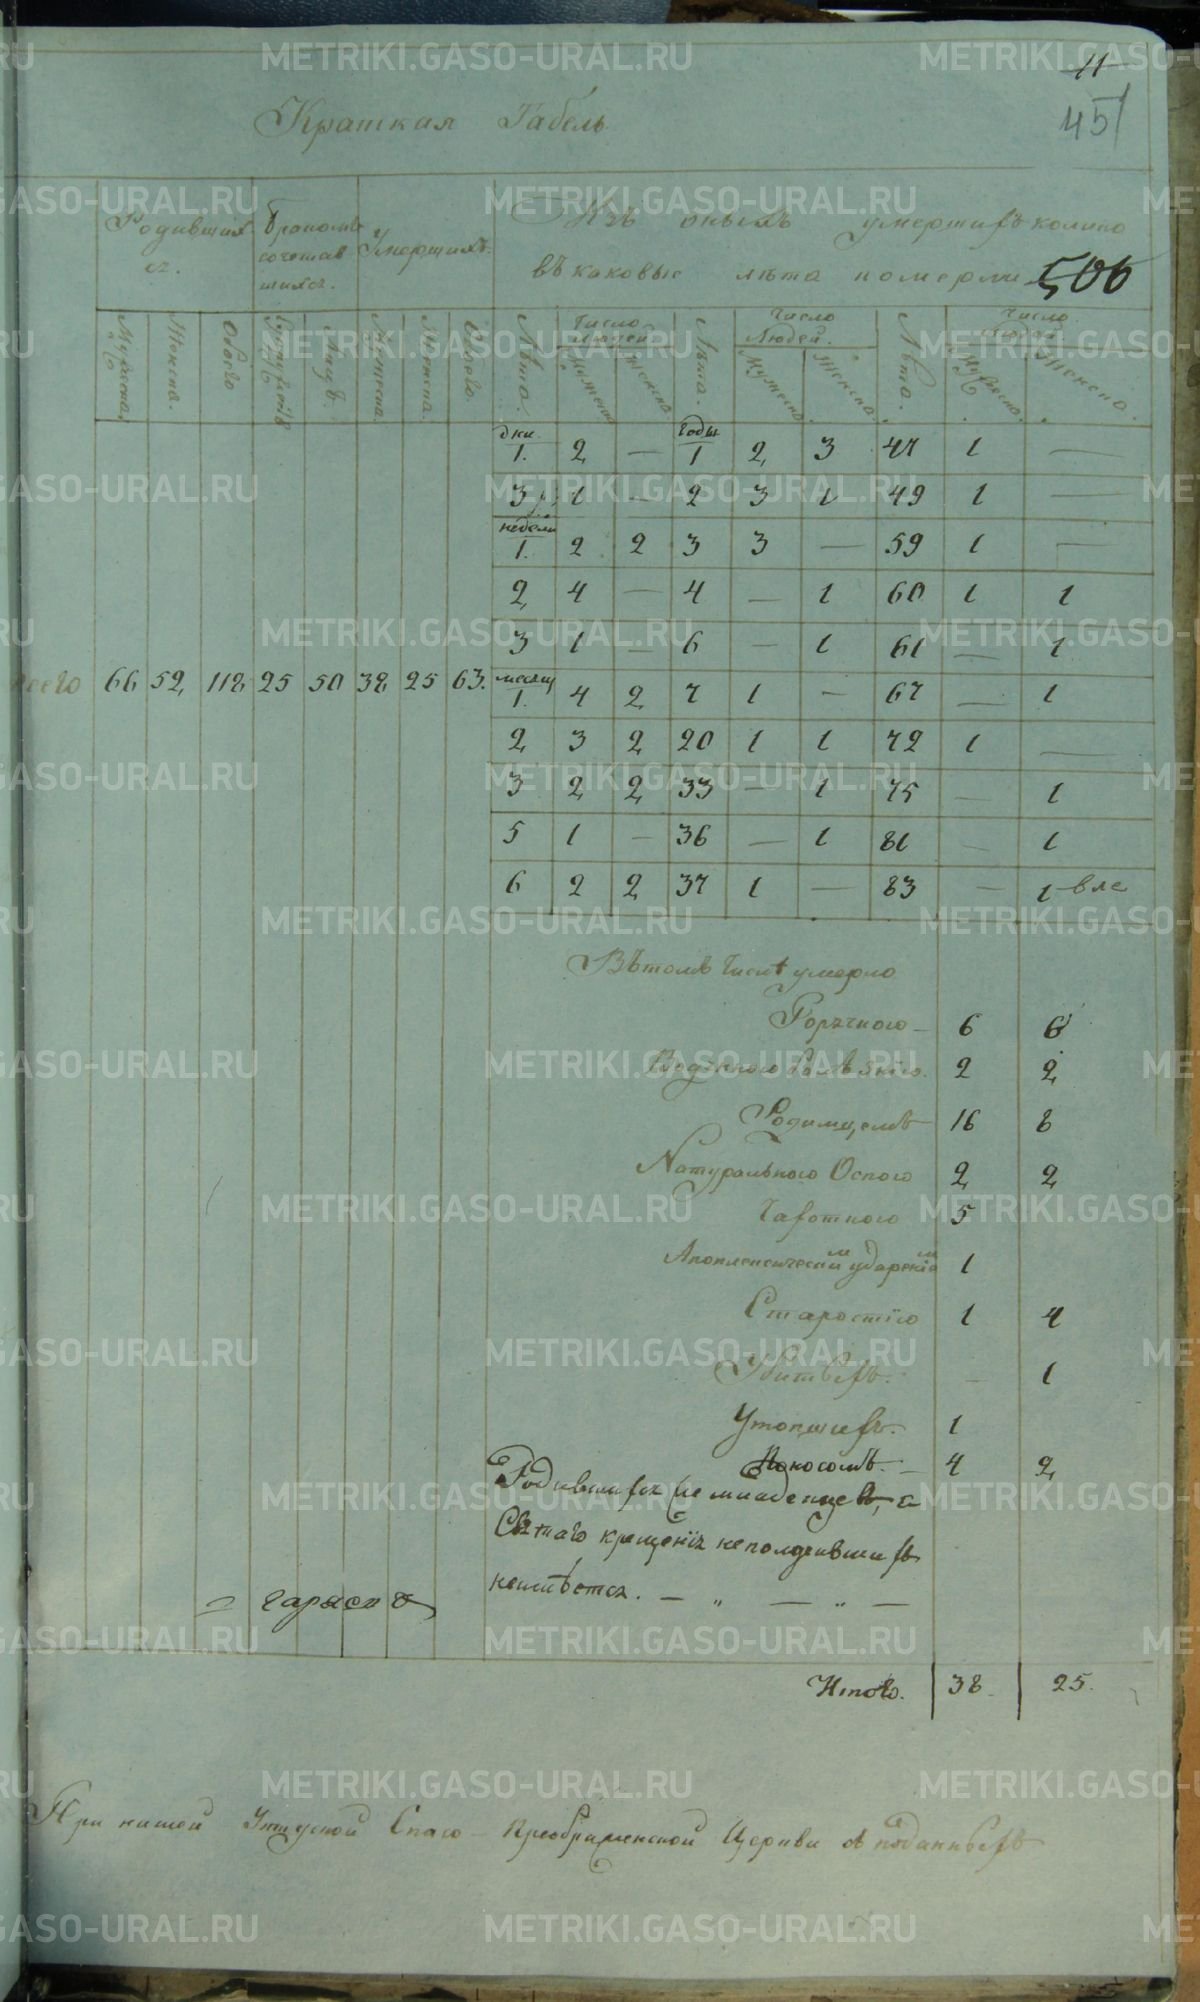 METRIKI.GASO-URAL.RU
11
451
Краткая Табель
Родивших
ся.
Бракомъ
сочетав
шихся.
Умершихъ.
Изъ оныхъ умершихъ колико
въ каковые лѣта померли
506
Мужеска.
Женска.
Обоего
Лицъ.
Мужеска.
Женска
Обоего.
Лѣта.
Число Людей
Мужеска
Женска
Лѣта.
Число Людей.
Мужеска
Женска.
Лѣта.
Число Людей
Мужеска.
Женска.
дни 1. 2 — годы 1 2 3 47 1 —
3 1 — 2 3 1 49 1 —
недели 1. 2 2 3 3 — 59 1 —
2 4 — 4 — 1 60 1 1
3 1 — 6 — 1 61 — 1
всего 66 52 118 25 50 38 25 63.
месяц 1. 4 2 7 1 — 67 — 1
2 3 2 20 1 1 72 1 —
3 2 2 33 — 1 75 — 1
5 1 — 36 — 1 81 — 1
6 2 2 37 1 — 83 — 1
Въ томъ числѣ умерло
Горячкою — 6 6
2 2
Родимцемъ 16 8
Натуральною Оспою 2 2
Чахоткою 5
Апоплексическим ударением 1
Старостію 1 4
Убитыхъ. — 1
Утопшихъ. 1
Поносомъ. — 4 2
Родившихся младенцевъ, а
Святаго крещенія неполучившихъ
неимѣется. — „ — „ —
Итого. 38. 25.
При нашей Уктусской Спасо-Преображенской Церкви